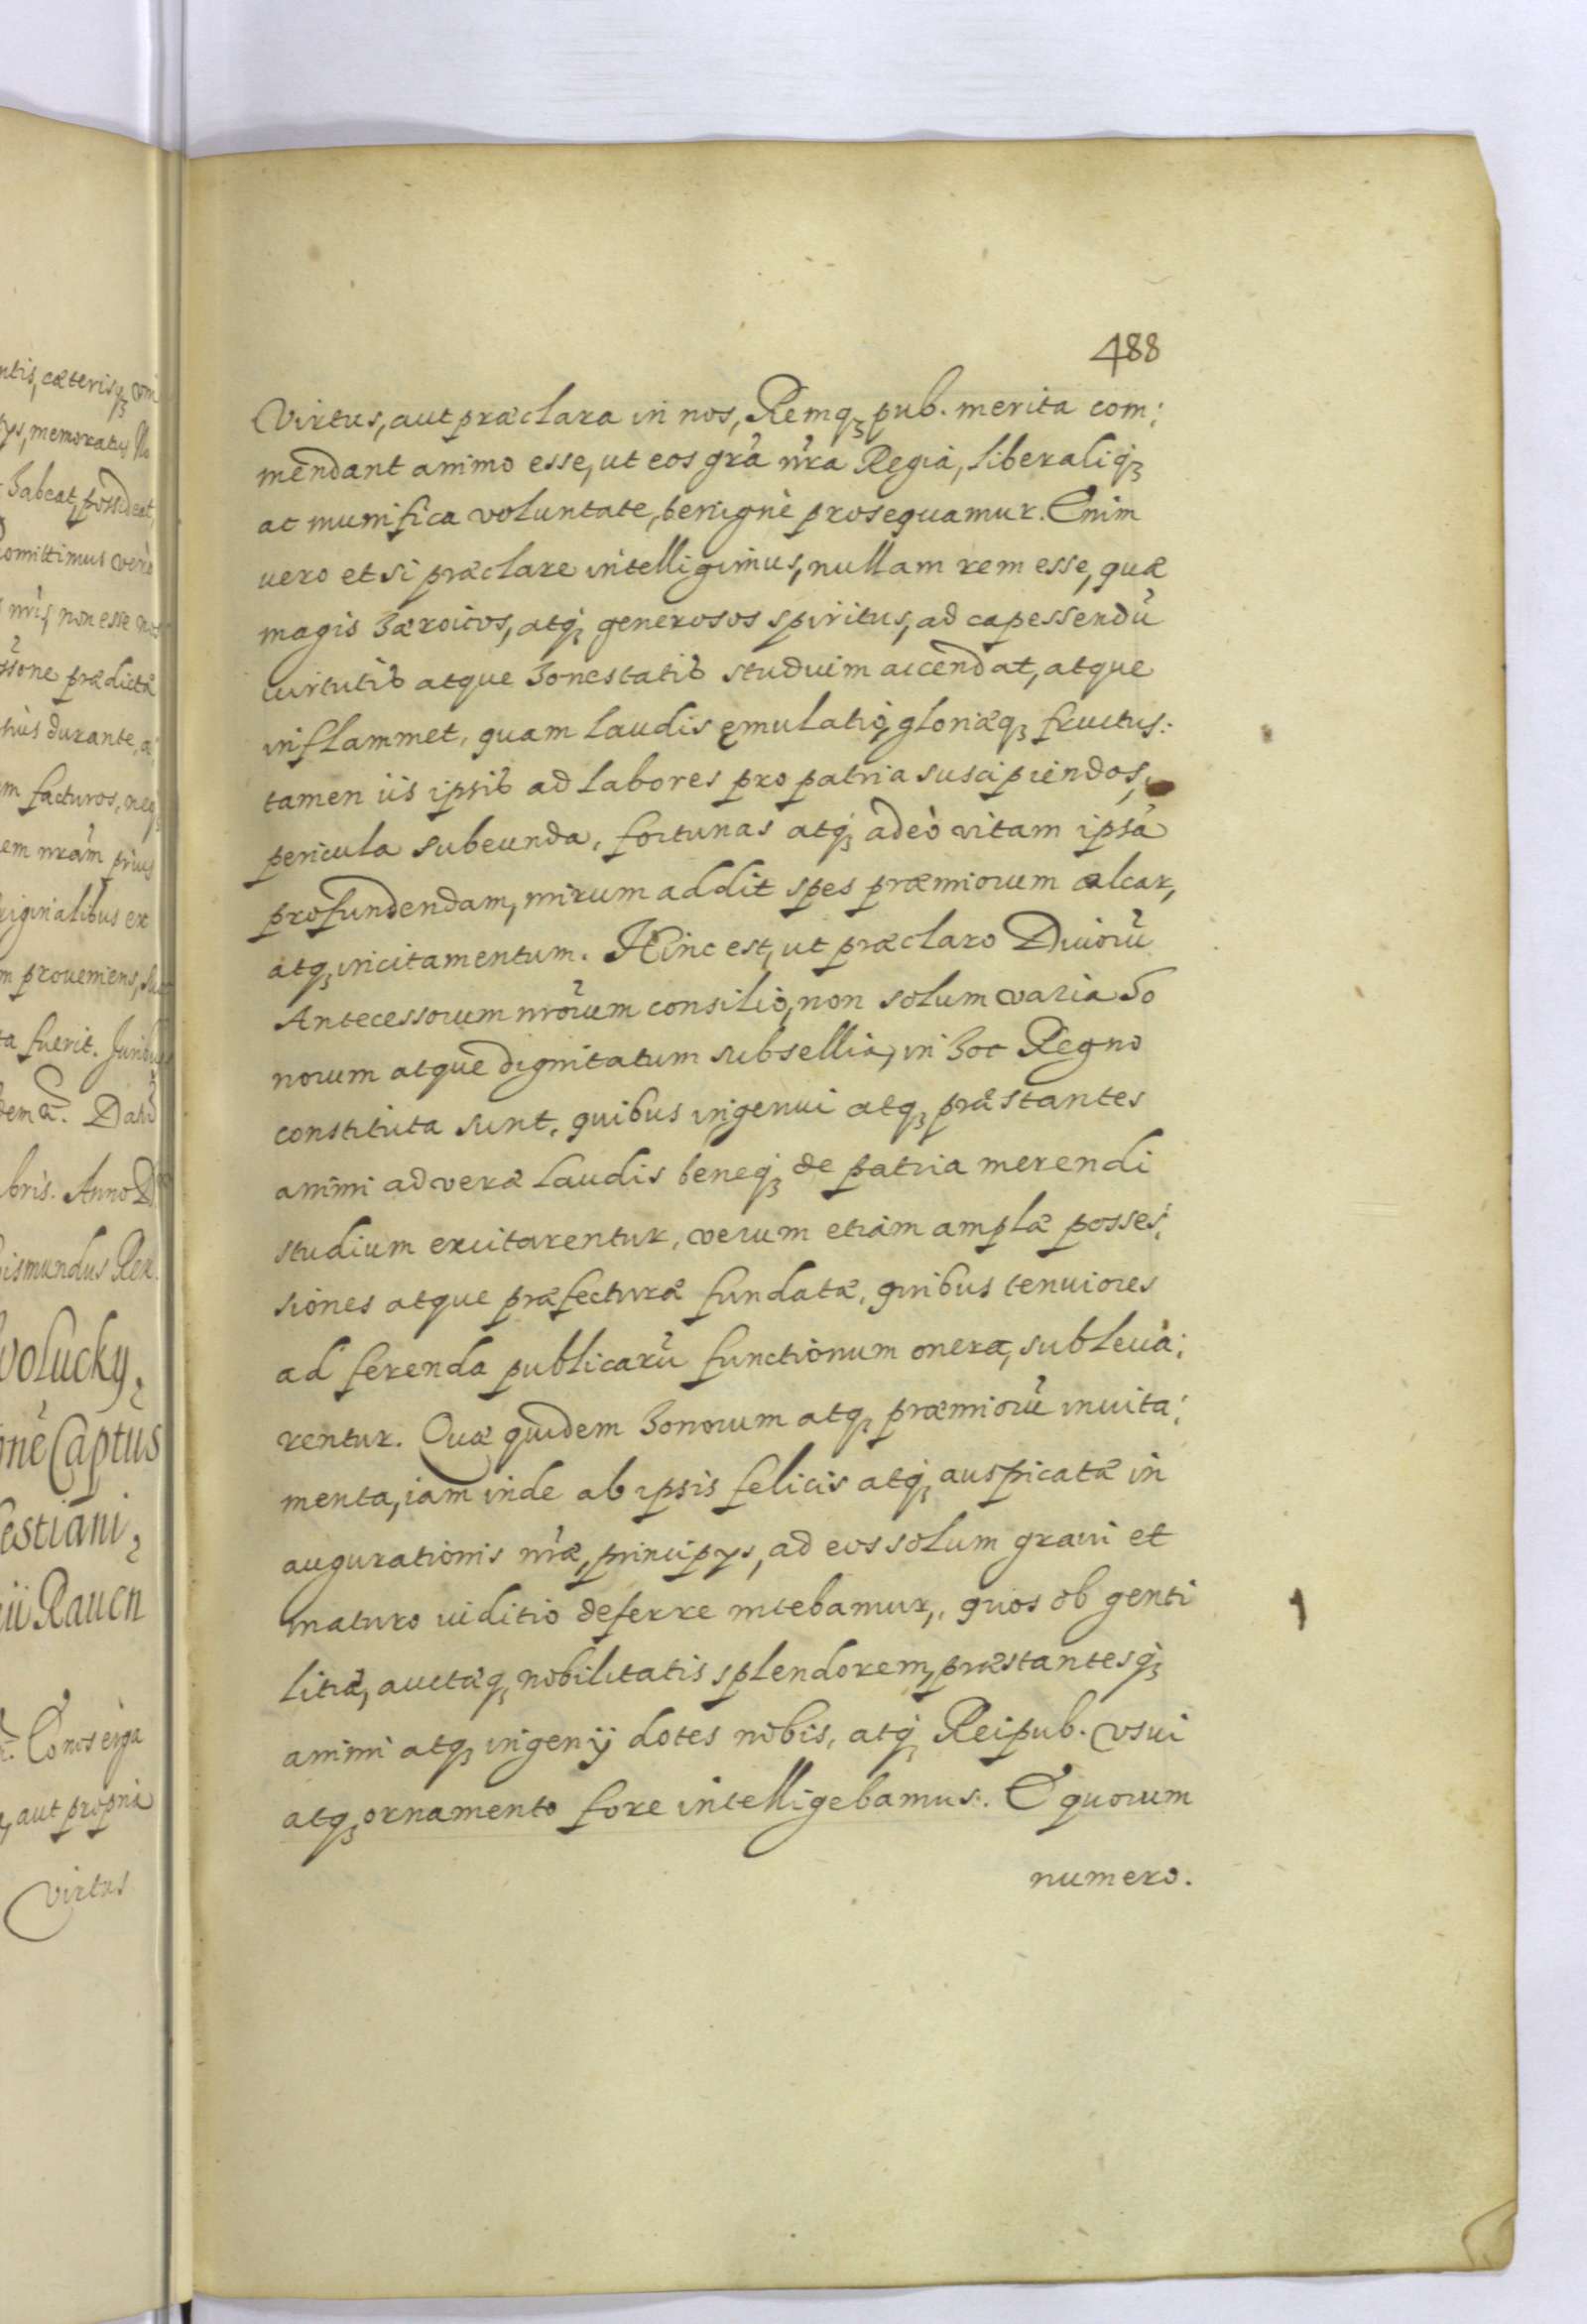 488
Virtus, aut præclara in nos, Remq₃ pub. merita com:
mendant animo esse, ut eos grã nr̃a Regia, liberaliq₃
ac munifica voluntate, benigne prosequamur. Enim
uero et si præclare intelligimus, nullam rem esse, quæ
magis hæroicos, atq₃ generosos spiritus, ad capessendũ
uirtutis atque honestatis studium accendat, atque
inflammet, quam laudis ęmulatio, gloriæq₃ fructus:
tamen iis ipsis ad labores pro patria suscipiendos,
pericula subeunda, fortunas atq₃ adeò vitam ipsã
profundendam, mirum addit spes præmiorum calcar,
atq₃ incitamentum. Hinc est, ut præclaro Diuorũ
Antecessorum nr̃orum consilio, non solum varia ho
norum atque dignitatum subsellia, in hoc Regno
constituta sunt, quibus ingenui atq₃ præstantes
animi ad veræ laudis beneq₃ de patria merendi
studium excitarentur, verum etiam amplæ posses:
siones atque præfecturæ fundatæ, quibus tenuiores
ad ferenda publicarũ functionum onera, subleua:
rentur. Quæ quidem honorum atq₃ præmiorũ inuita:
menta, iam inde ab ipsis felicis atq₃ auspicatæ in
augurationis nr̃æ, principys, ad eos solum graui et
maturo iuditio deferre nitebamur, quos ob genti
litiã, auctãq₃ nobilitatis splendorem, præstantesq₃
animi atq₃ ingenÿ dotes nobis, atq₃ Reipub. vsui
atq₃ ornamento fore intelligebamus. E quorum
numero.
ntis, cæterisq₃ vni
ys, memoratus
habeat, possideat,
omittimus vero
nr̃is non esse
ssione prædictã
durante, a
m facturos, neq₃
em nr̃am prius
riginalibus ex
m proueniens,
ta fuerit. Juribus
bris. Anno D
ismundus Rex.
Captus
estiani
Rauen
aut propria
Virtus